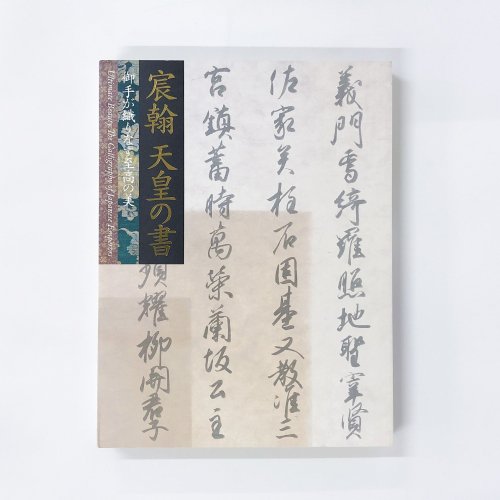 宸翰 天皇の書
御手が織りなす至高の美
Ultimate Beauty: The Calligraphy of Japanese Emperors
義門綺羅照地聖宰賢
佐家柱石因基又敷准三
宮鎮蕃時萬榮蘭坂公主
耀柳開